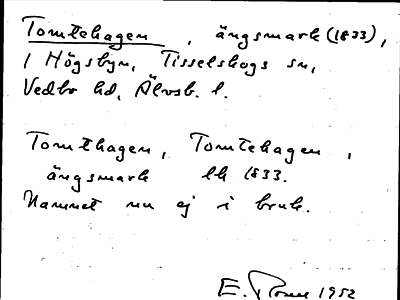 Tomtehagen, ängsmark (1833),
i Högsbyn, Tisselskogs sn,
Vedbo hd, Älvsb. l.
Tomthagen, Tomtehagen,
ängsmark lh 1833.
Namnet nu ej i bruk.
E. 1952